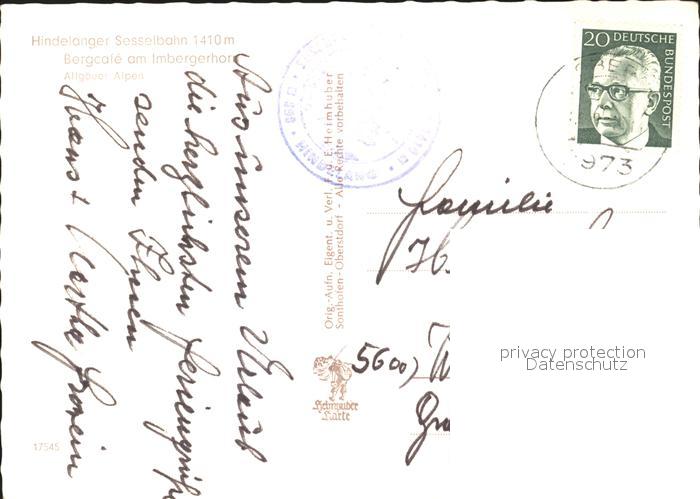 Hindelanger Sesselbahn 1410 m
Bergcafé am Imbergerhorn
Allgäuer Alpen
Aus unserem Urlaub
die herzlichsten Feriengrüße
senden Ihnen
Hans +
17545
Orig.-Aufn. Eigent. u. Verl. F. u. E. Heimhuber
Sonthofen-Oberstdorf - Alle Rechte vorbehalten
Heimhuber
Karte
HINDELANG
20 DEUTSCHE
BUNDESPOST
973
Familie
H.
5600) W
Gr
privacy protection
Datenschutz